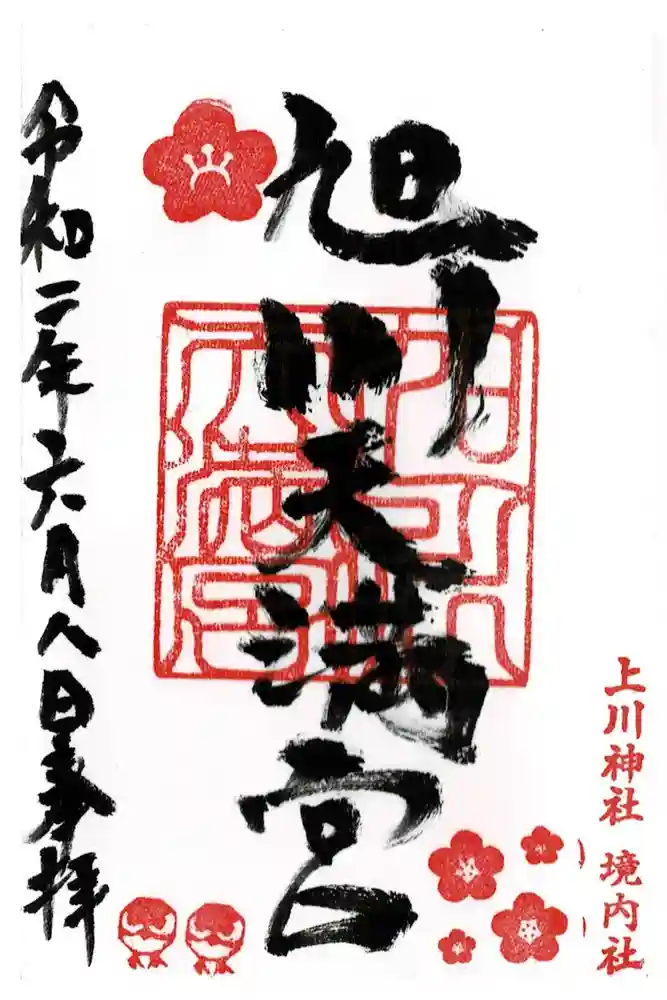 上川神社 境内社
旭川天満宮
令和二年六月八日奉拝